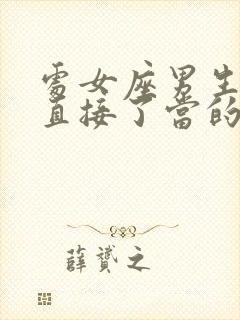 處女座男生
直接了當的
薛贇之